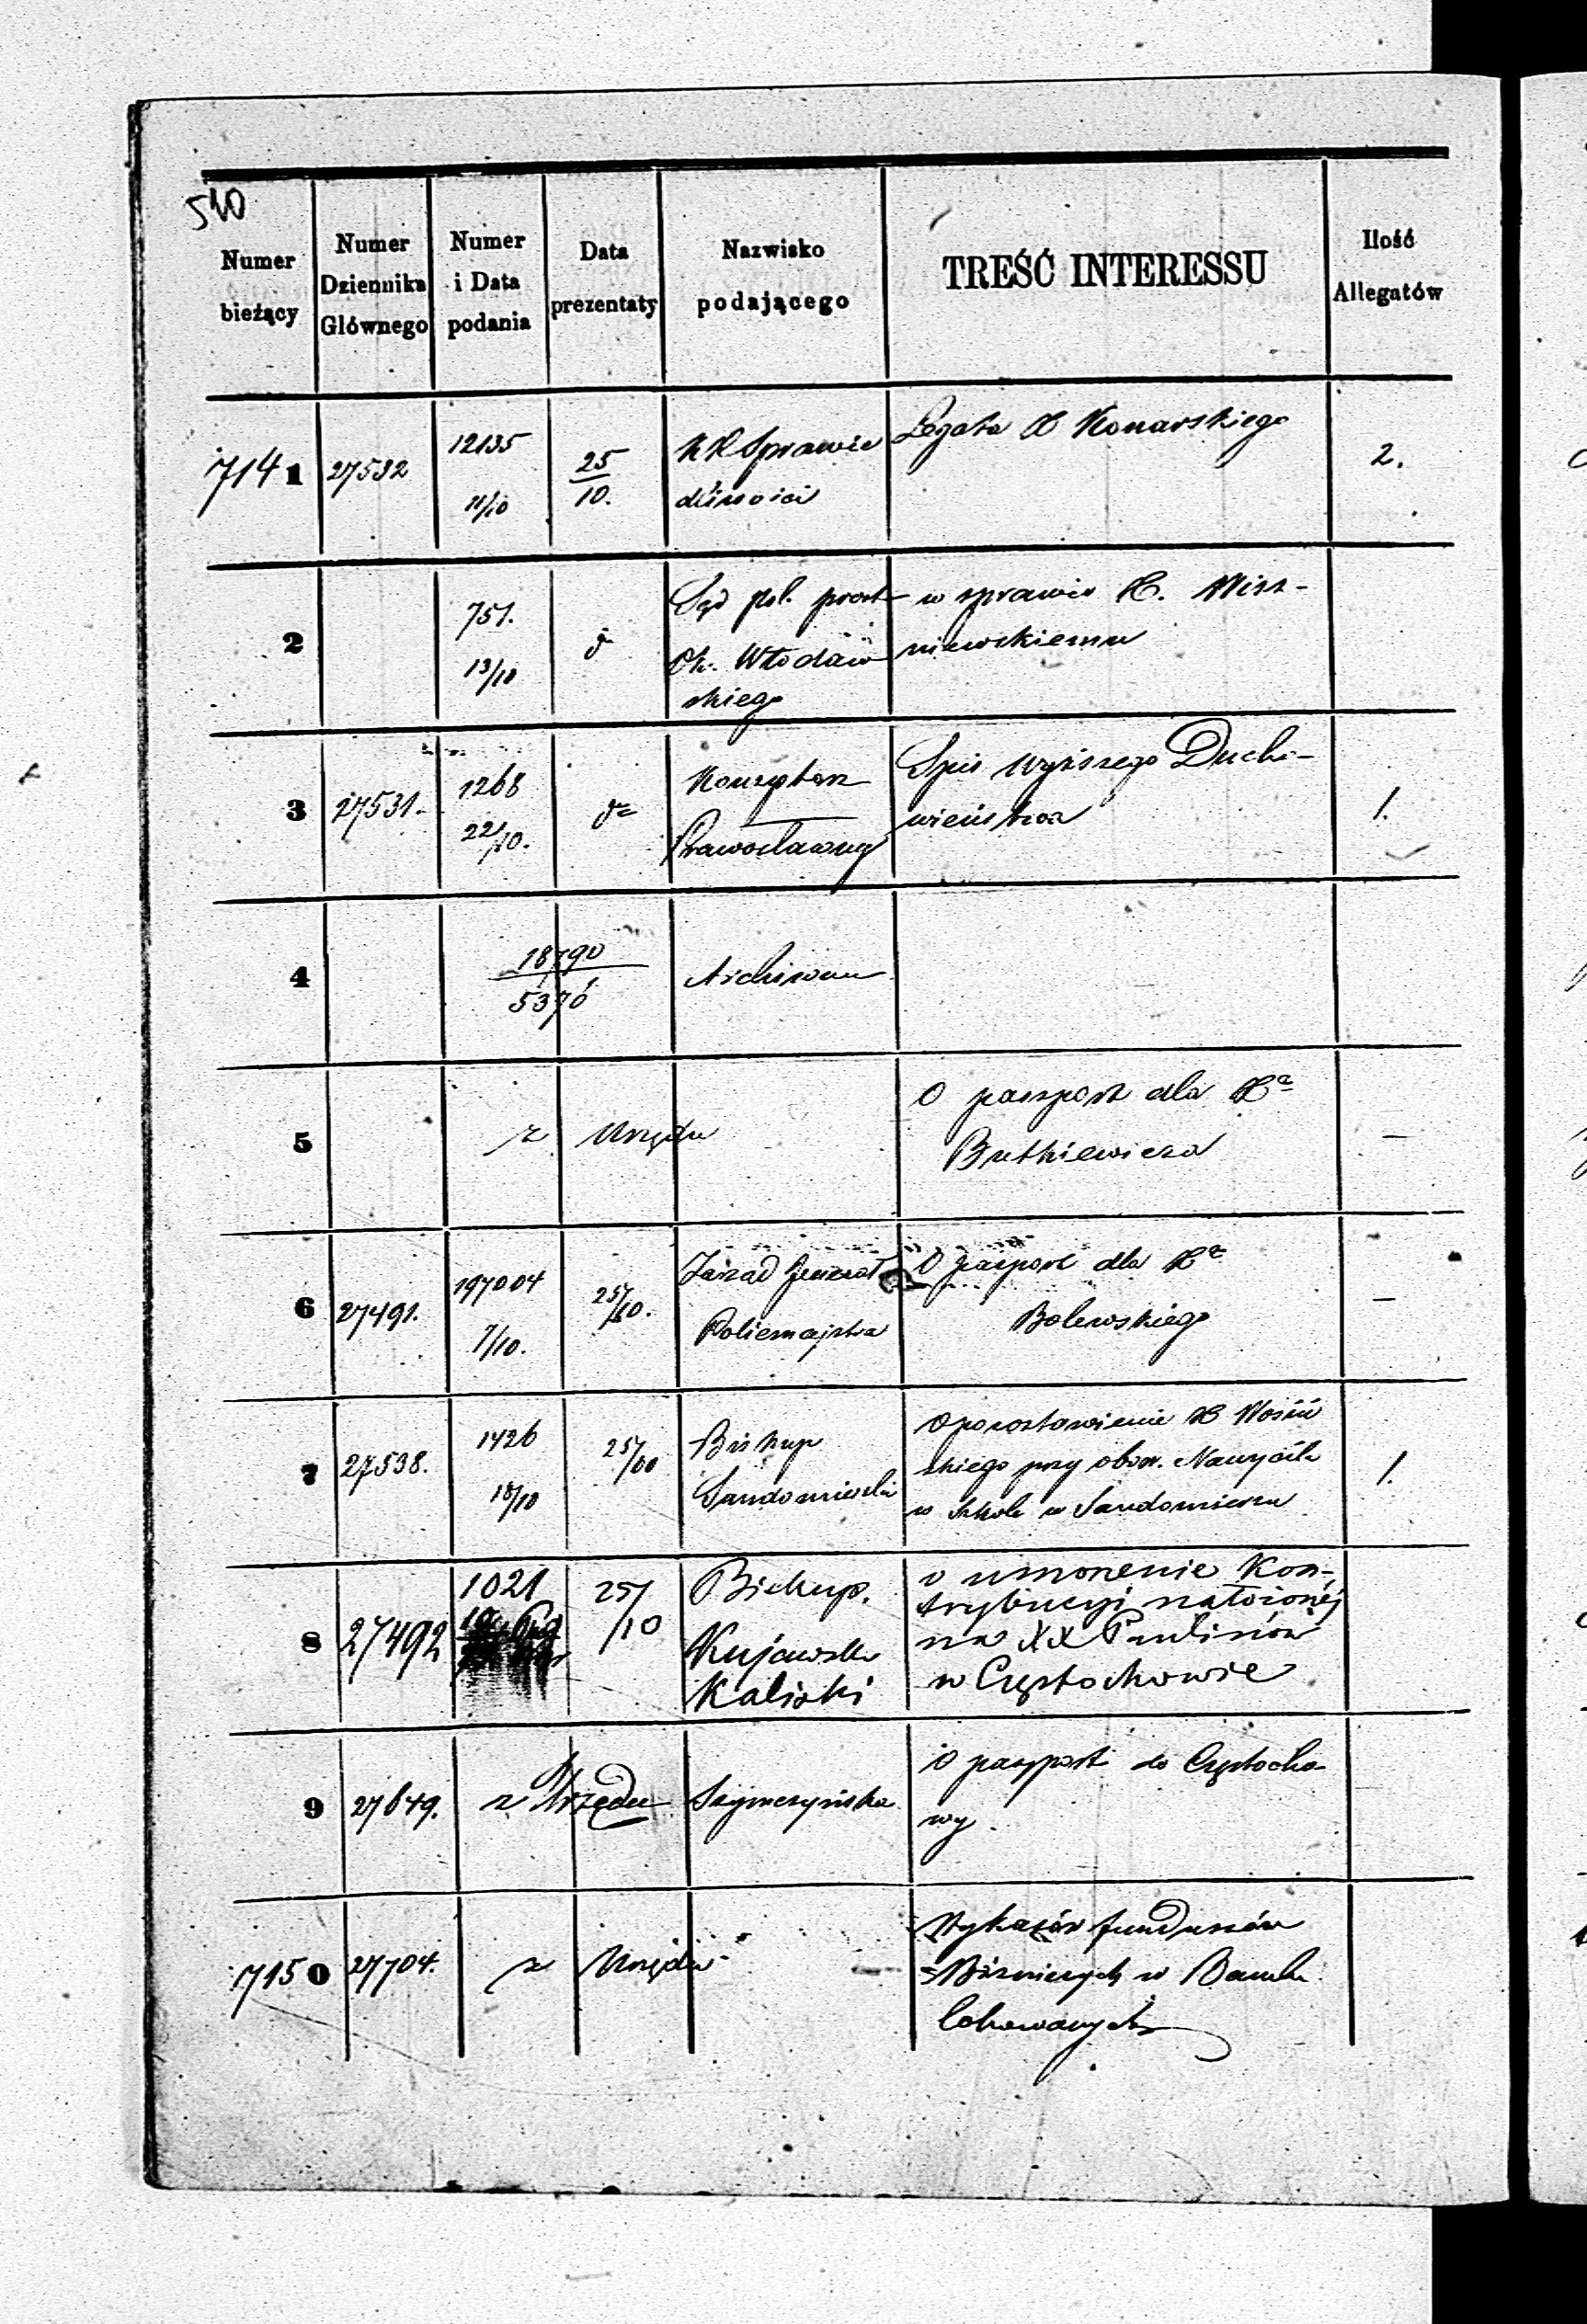 510
Numer bieżący
Numer Dziennika Głównego
Numer i Data podania
Data prezentaty
Nazwisko podającego
TREŚĆ INTERESSU
Ilość Allegatów
7141 27532 12135 25/10. KR Sprawie Legata X Konarskiego 2.
11/10 dliwości
2 751. d Sąd pol. prost w sprawie X. Wisz-
13/10 Ok. Włodaw niewskiemu
skiego
3 27531. 1268 dº Konsystorz Spis wyższego Ducho-
22/10. Prawosławny wieństwa 1.
4 18790 Archiwum
5376
5 z Urzędu O paszport dla Xª
Butkiewicza —
6 27491. 197004 25/10. Zarząd Generał O paszport dla Xª
7/10. Policmajstra Bolewskiego —
7 27538. 1426 25/10 Biskup O pozostawienie X
18/10 Sandomierski skiego przy obow. Nauczyciela 1.
w szkole w Sandomierzu
8 27492 1021 25/10 Biskup. o umorzenie Kon-
Kujawsko trybucyi nałożonéj
Kaliski na XX Paulinów
w Częstochowie
9 27649. z Urzędu Szymczyńska O paszport do Częstocho-
wy.
7150 27704. z Urzędu Wykazów funduszów
w Banku
lokowanych